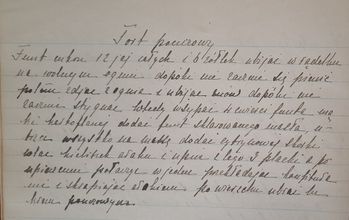 Tort ponczowy
Funt cukru 12 jaj całych i 6 żółtek ubijać w rądelku
na wolnym ogniu dopóki nie zacznie się pienić
potem zdjąć z ognia i ubijać znów dopóki nie
zacznie stygnąć wtedy wsypać funta mą
ki kartoflanej dodać funt sklarowanego masła u
wszystko na masę dodać cytrynowej skórki
wlać kieliszek araku i upiec z tego 3 placki a po
upieczeniu położyć w jedno przekładając konfitura
mi i skrapiając arakiem po wierzchu ubrać lu
krem ponczowym